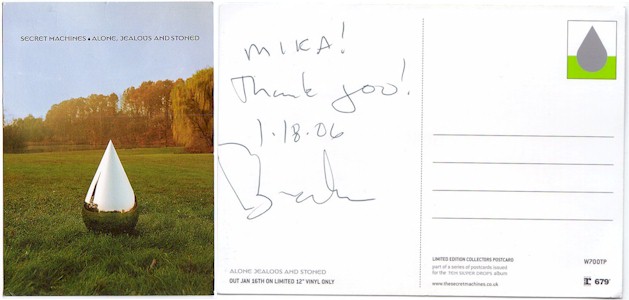 SECRET MACHINES ▲ ALONE, JEALOUS AND STONED
MIKA!
Thank you!
1.18.06
ALONE JEALOUS AND STONED
OUT JAN 16TH ON LIMITED 12" VINYL ONLY
LIMITED EDITION COLLECTORS POSTCARD
part of a series of postcards issued
for the TEN SILVER DROPS album
www.thesecretmachines.co.uk
W700TP
679